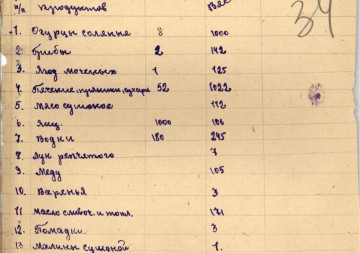 п/п продуктов Вес 34
1. Огурцы соленые 8 1000
2. Грибы 2 142
3. Ягод моченых 1 125
4. Печение, пряники, сухари 52 1022
5. Мясо сушоное 112
6. Яиц. 1000 106
7. Водки 180 245
8. Лук репчатого 7
9. Меду 105
10. Варенья 3
11 Масло сливоч. и топл. 171
12. Помадки 3
13 Малины сушоной 1.